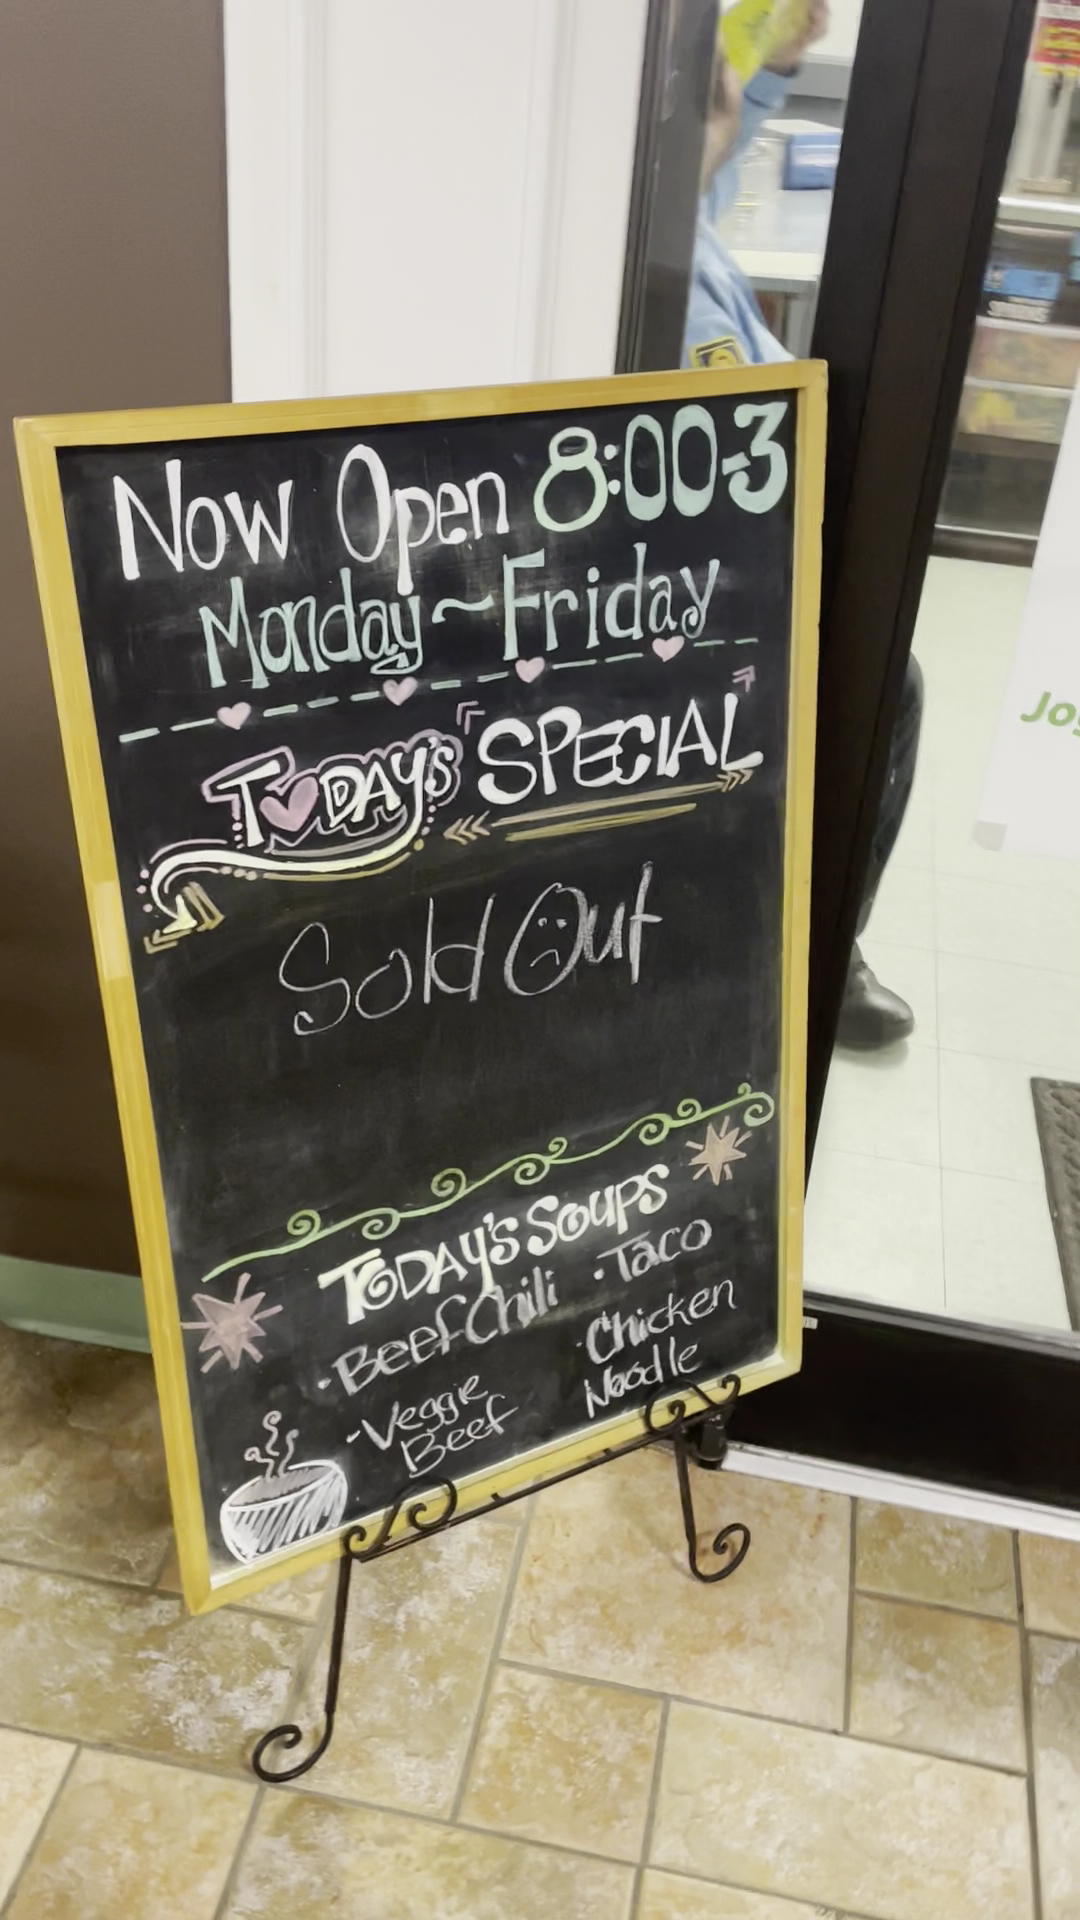 Now Open 8:00-3
Monday~Friday
TODAY'S SPECIAL
Sold Out
TODAY'S SOUPS
·Beef Chili ·Taco
·Veggie Beef
·Chicken Noodle